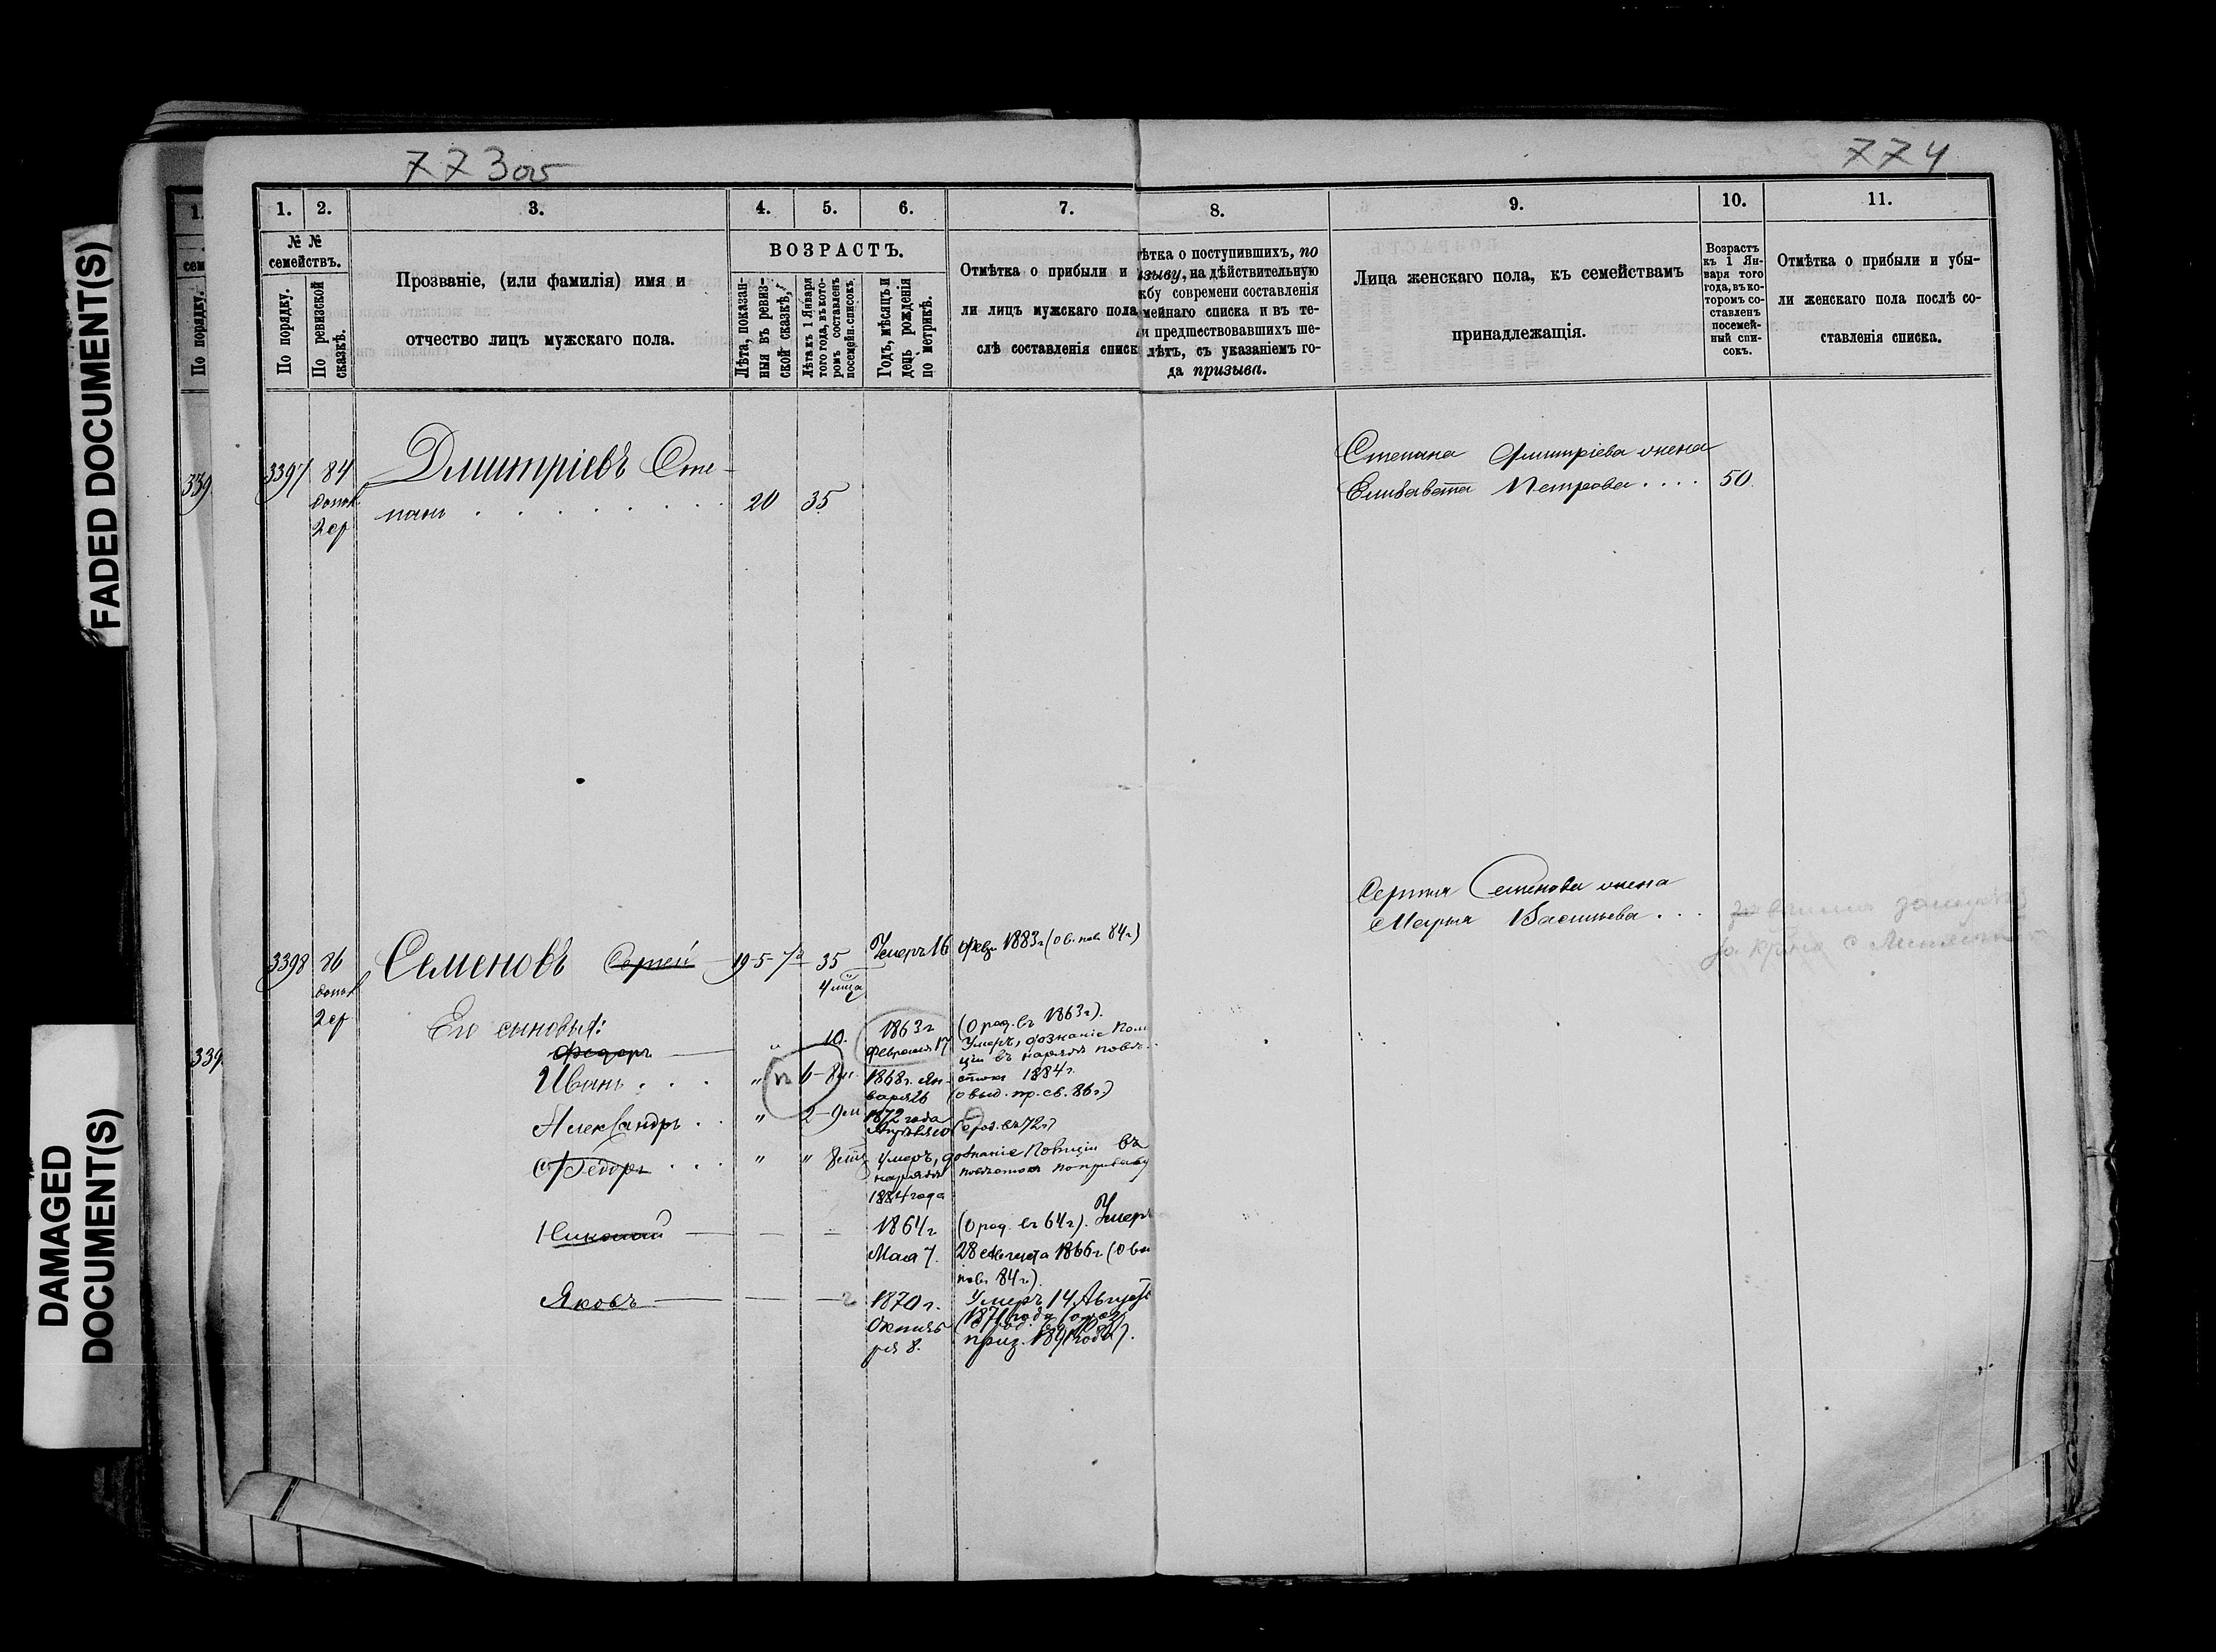 FADED DOCUMENT(S)
DAMAGED
DOCUMENT(S)
773об
774
1.
2.
3.
4.
5.
6.
7.
8.
9.
10.
11.
№ №
семействъ.
По порядку.
По ревизской
сказкѣ.
Прозваніе, (или фамилія) имя и
отчество лицъ мужскаго пола.
ВОЗРАСТЪ.
Лѣта, показан-
ныя въ ревиз-
ской сказкѣ.
Лѣта къ 1 Января
того года, въ кото-
ромъ составленъ
посемейн. списокъ.
Годъ, мѣсяцъ и
день рожденія
по метрикѣ.
Отмѣтка о прибыли и
ли лицъ мужскаго пола
слѣ составленія списк
ѣтка о поступившихъ, по
изыву, на дѣйствительную
жбу современи составленія
мейнаго списка и въ те-
и предшествовавшихъ ше-
лѣтъ, съ указаніемъ го-
да призыва.
Лица женскаго пола, къ семействамъ
принадлежащія.
Возрастъ
къ 1 Ян-
варя того
года, въ ко-
торомъ со-
ставленъ
посемей-
ный спи-
сокъ.
Отмѣтка о прибыли и убы-
ли женскаго пола послѣ со-
ставленія списка.
339
3397 84 Дмитріевъ Сте-
допол
2 ср
панъ 20 35
Степана Дмитріева жена
Елизавета Петрова .... 50.
Сергѣя Семенова жена
Марья Васильева ...
3398 86 Семеновъ Сергѣй 19-5 35 Умеръ 16 Февр. 1883г (о в. пов. 84г.)
допол
2 ср
4 м-ца
339
Его сыновья:
Федоръ " 10. 1863г (О род. въ 1863г).
Февраля 17 Умеръ, дознаніе Поли
ціи въ нарядѣ повѣ-
стокъ 1884г.
Иванъ ... " 6-8м. 1868г. Ян-
варя 26 (о выд. пр. св. 86г.)
Александръ .. " 2-9м 1872 года
(о род. въ 72г)
Ѳедоръ ... " " 8м-ц умеръ, дознаніе Полиціи въ
нарядѣ повѣстокъ по призыву
1884 года
Николай 1864г (О род. въ 64г). Умеръ
Мая 7. 28 Августа 1866г (о вы
пов. 84г).
Яковъ 1870г. Умеръ 14 Августа
Октяб 1871 года
ря 8. приз. 1891 года).